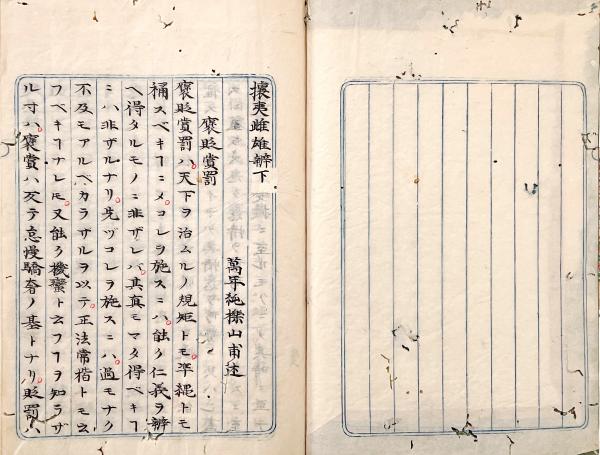 攘夷雌雄辨下
萬年純櫟山甫述
褒貶賞罰
褒貶賞罰ハ天下ヲ治ムルノ規矩トモ準縄トモ
稱スベキヿニメコレヲ施スニハ能ク仁義ヲ辨
ヘ得タルモノニ非ザレバ其真モマタ得ベキヿ
ニハ非ザルナリ先ヅコレヲ施スニハ過モナク
不及モアルベカラザルヲ以テ正法常楷トモ云
フベキヿナレ𪜈又能ク機變ト云フヿヲ知ラザ
ル寸ハ褒賞ハ反テ怠慢驕奢ノ基トナリ貶罰ハ